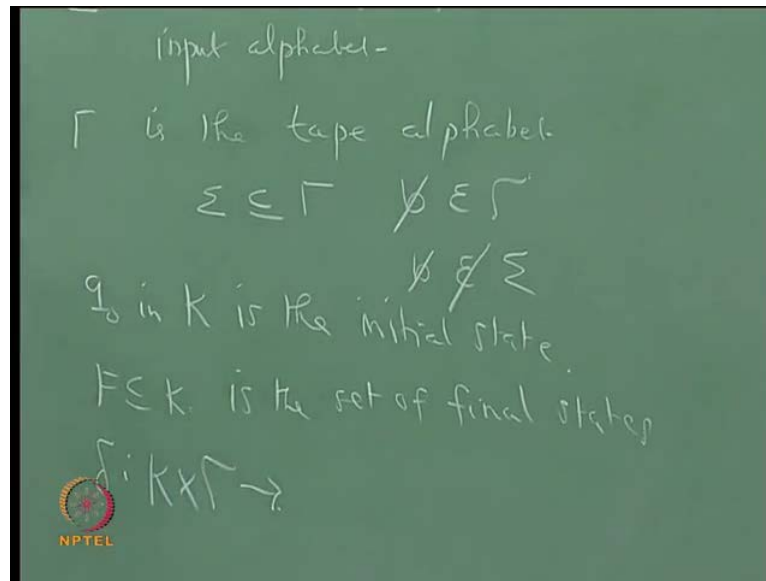 input alphabet
Γ is the tape alphabet.
Σ ⊆ Γ ᵬ ∈ Γ
ᵬ ∉ Σ
q₀ in K is the initial state.
F ⊆ K. is the set of final states
δ: K × Γ →
NPTEL